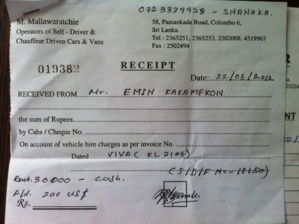 0723329958 - SHANAKA.
M. Mallawaratchie
Operators of Self - Driver &
Chauffeur Driven Cars & Vans
58, Pamankada Road, Colombo 6,
Sri Lanka.
Tel : 2365251, 2365253, 2502008, 4519967
Fax : 2502494
019382
RECEIPT
Date: 22/03/2012
RECEIVED FROM Mr. EMIN KAKAMEKON
the sum of Rupees
by Cahs / Cheque No.
On account of vehicle hire charges as per invoice No.
Dated VIVA (KL 2106)
Rent. 30000 - Cash.
200 US$
Rs.